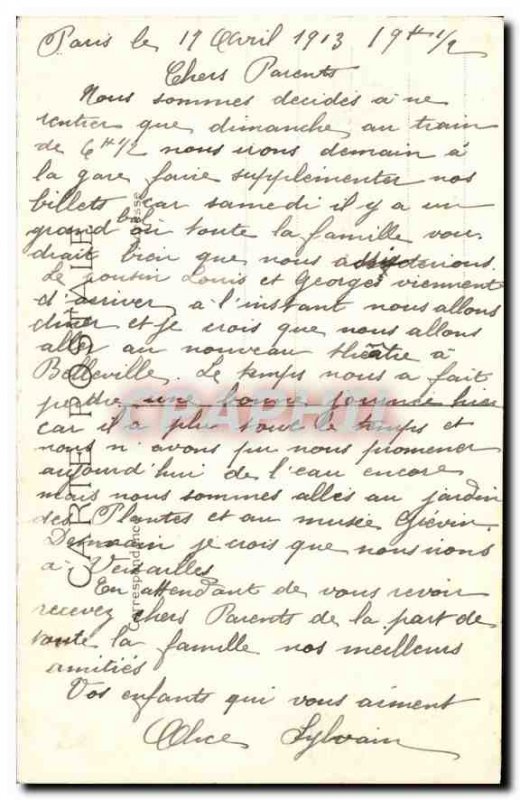 Paris le 17 Avril 1913 19H 1/2
Chers Parents
Nous sommes décidés à ne
rentrer que dimanche au train
de 6H 1/2 nous irons demain à
la gare faire supplémenter nos
billets car samedi il y a un
grand bal où toute la famille vou
drait bien que nous assisterions.
Le cousin Louis et Georges viennent
d'arriver à l'instant nous allons
dîner et je crois que nous allons
aller au nouveau théâtre à
Belleville. Le temps nous a fait
perdre une bonne journée hier
car il a plus tout le temps et
nous n'avons pu nous promener
aujourd'hui de l'eau encore
mais nous sommes allés au jardin
des Plantes et au musée Grévin
Demain je crois que nous irons
à Versailles
En attendant de vous revoir
recevez chers Parents de la part de
toute la famille nos meilleurs
amitiés
Vos enfants qui vous aiment
Alice Sylvain
CARTE POSTALE
Correspondance
Adresse
CPAPHIL